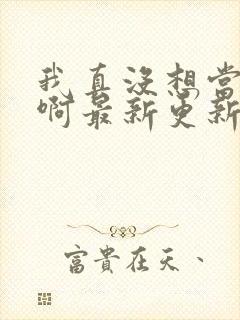 我真没想当
啊最新更新
富貴在天、